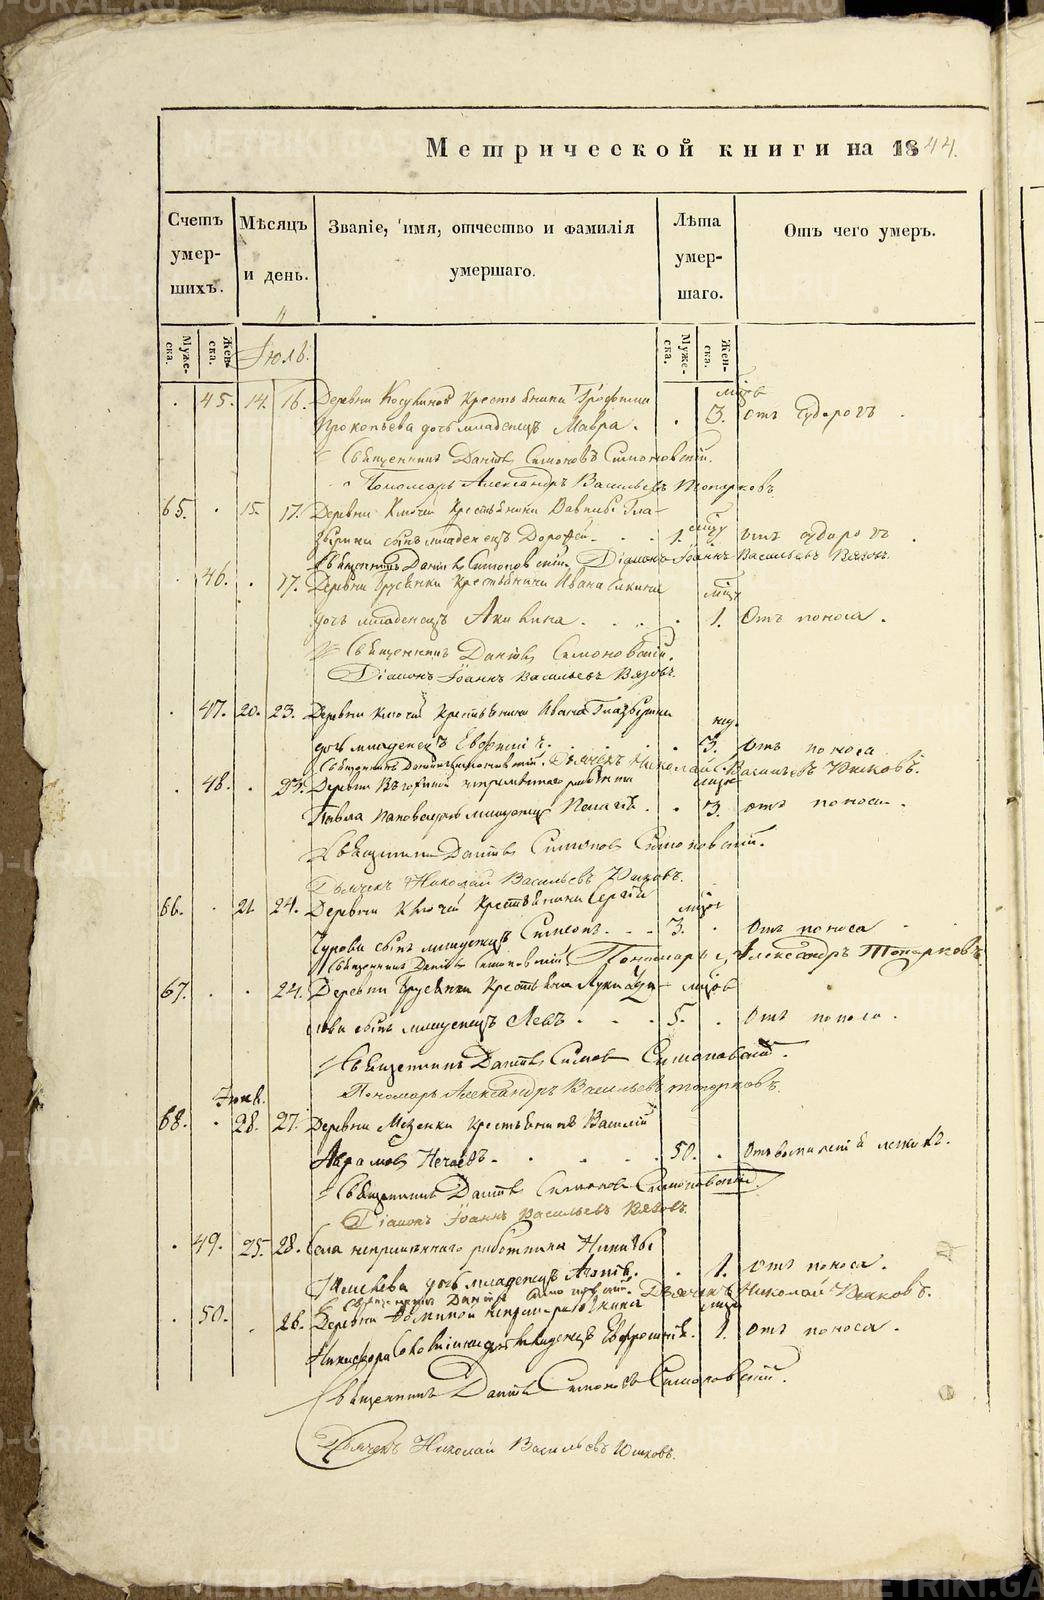 Метрической книги на 1844.
Счетъ умер-шихъ.
Мѣсяцъ и день.
Званіе, имя, отчество и фамилія умершаго.
Лѣта умер-шаго.
Отъ чего умеръ.
Муже-ска.
Жен-ска.
Іюль.
Муже-ска.
Жен-ска.
. 45. 14. 16. Деревни Крестьянина Трофима мцов
Прокопьева дочь младенецъ Мавра . . 3. отъ судорогъ .
Священникъ Даніилъ Симоновъ Симоновскій.
Пономарь Александръ Васильевъ Топорковъ
65. . 15. 17. Деревни Ключей Крестьянина Вавилы Гла-
зырина сынъ младенецъ Дорофей . . . 1. мцу отъ судорогъ .
Священникъ Даніилъ Симоновскій Діаконъ Іоаннъ Васильевъ Вязовъ.
. 46. . 17. Деревни Брусянки Крестьянина Ивана мцъ
дочь младенецъ Акилина . . . . 1. Отъ поноса .
Священникъ Даніилъ Симоновскій.
Діаконъ Іоаннъ Васильевъ Вязовъ.
. 47. 20. 23. Деревни Ключей Крестьянина Ивана Глазырина
дочь младенецъ Евфимія . . . . 3. нед. Отъ поноса
Священникъ Даніилъ Симоновскій. Дьячекъ Николай Васильевъ Юшковъ.
. 48. . 23. Деревни работника мцов
Павла дочь младенецъ Пелагія . . 3. отъ поноса .
Священникъ Даніилъ Симоновъ Симоновскій.
Дьячекъ Николай Васильевъ Юшковъ.
66. . 21 24. Деревни Ключей Крестьянина Сергія мцов
Чурова сынъ младенецъ Симеонъ . . . 3. . Отъ поноса
Священникъ Даніилъ Симоновскій. Пономарь Александръ Топорковъ
67. . . 24. Деревни Брусянки Крестьянина Луки мцов
сынъ младенецъ Левъ . . . 5. . Отъ поноса .
Священникъ Даніилъ Симоновъ Симоновскій.
Пономарь Александръ Васильевъ Топорковъ.
68. . 28. 27. Деревни Мезенки Крестьянинъ Василій
Аврамовъ Нечаевъ . . . . 50. . Отъ воспаленія легкихъ.
Священникъ Даніилъ Симоновъ Симоновскій.
Діаконъ Іоаннъ Васильевъ Вязовъ
. 49. 25. 28. Села непремѣннаго работника Никиты
дочь младенецъ Агапія . . 1. отъ поноса .
Священникъ Даніилъ Симоновскій. Дьячекъ Николай Юшковъ.
. 50. . 26. Деревни работника мцов
Никифора дочь младенецъ Евфросинія . 1. отъ поноса .
Священникъ Даніилъ Симоновъ Симоновскій.
Дьячекъ Николай Васильевъ Юшковъ.
METRIKI.GASO-URAL.RU